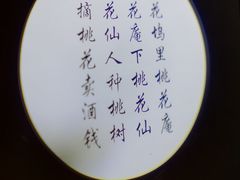 花坞里桃花庵
花庵下桃花仙
花仙人种桃树
摘桃花卖酒钱